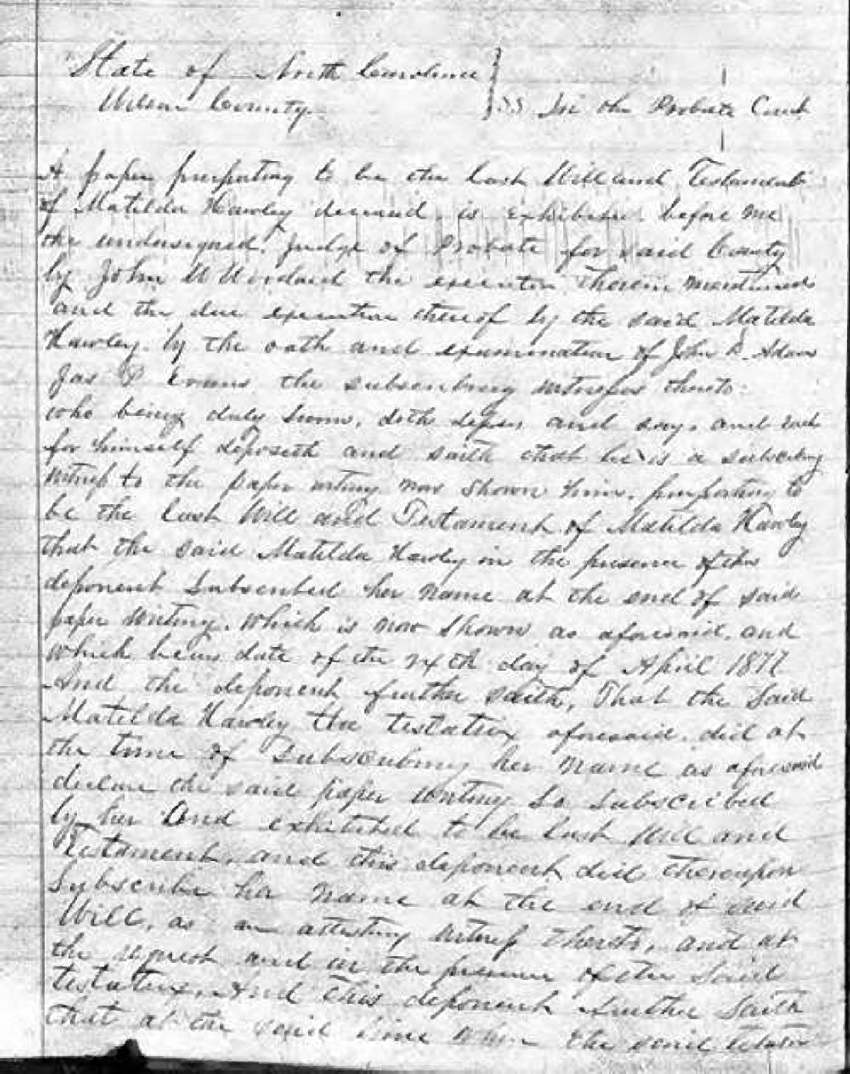 State of North Carolina
Wilson County. } SS In the Probate Court
A paper purporting to be the last Will and Testament
of Matilda Hawley deceased, is exhibited before me
the undersigned, Judge of Probate for said County
by John W the executor therein mentioned
and the due execution thereof by the said Matilda
Hawley. by the oath and examination of John R. Adams
Jas P. Evans the subscribing witnesses thereto:
who being duly sworn, doth depose and say, and each
for himself deposeth and saith that he is a subscribing
witness to the paper writing now shown him, purporting to
be the last Will and Testament of Matilda Hawley
that the said Matilda Hawley in the presence of this
deponent Subscribed her name at the end of said
paper writing. which is now shown as aforesaid, and
which bears date of the day of April 1877
And the deponent further saith, That the Said
Matilda Hawley the testatrix aforesaid, did at
the time of Subscribing her name as aforesaid
declare the said paper writing So Subscribed
by her And exhibited to be last Will and
Testament, and this deponent did thereupon
Subscribe her name at the end of said
Will, as an attesting witness thereto, and at
the request and in the presence of the Said
testatrix. And this deponent further Saith
that at the said time when the said